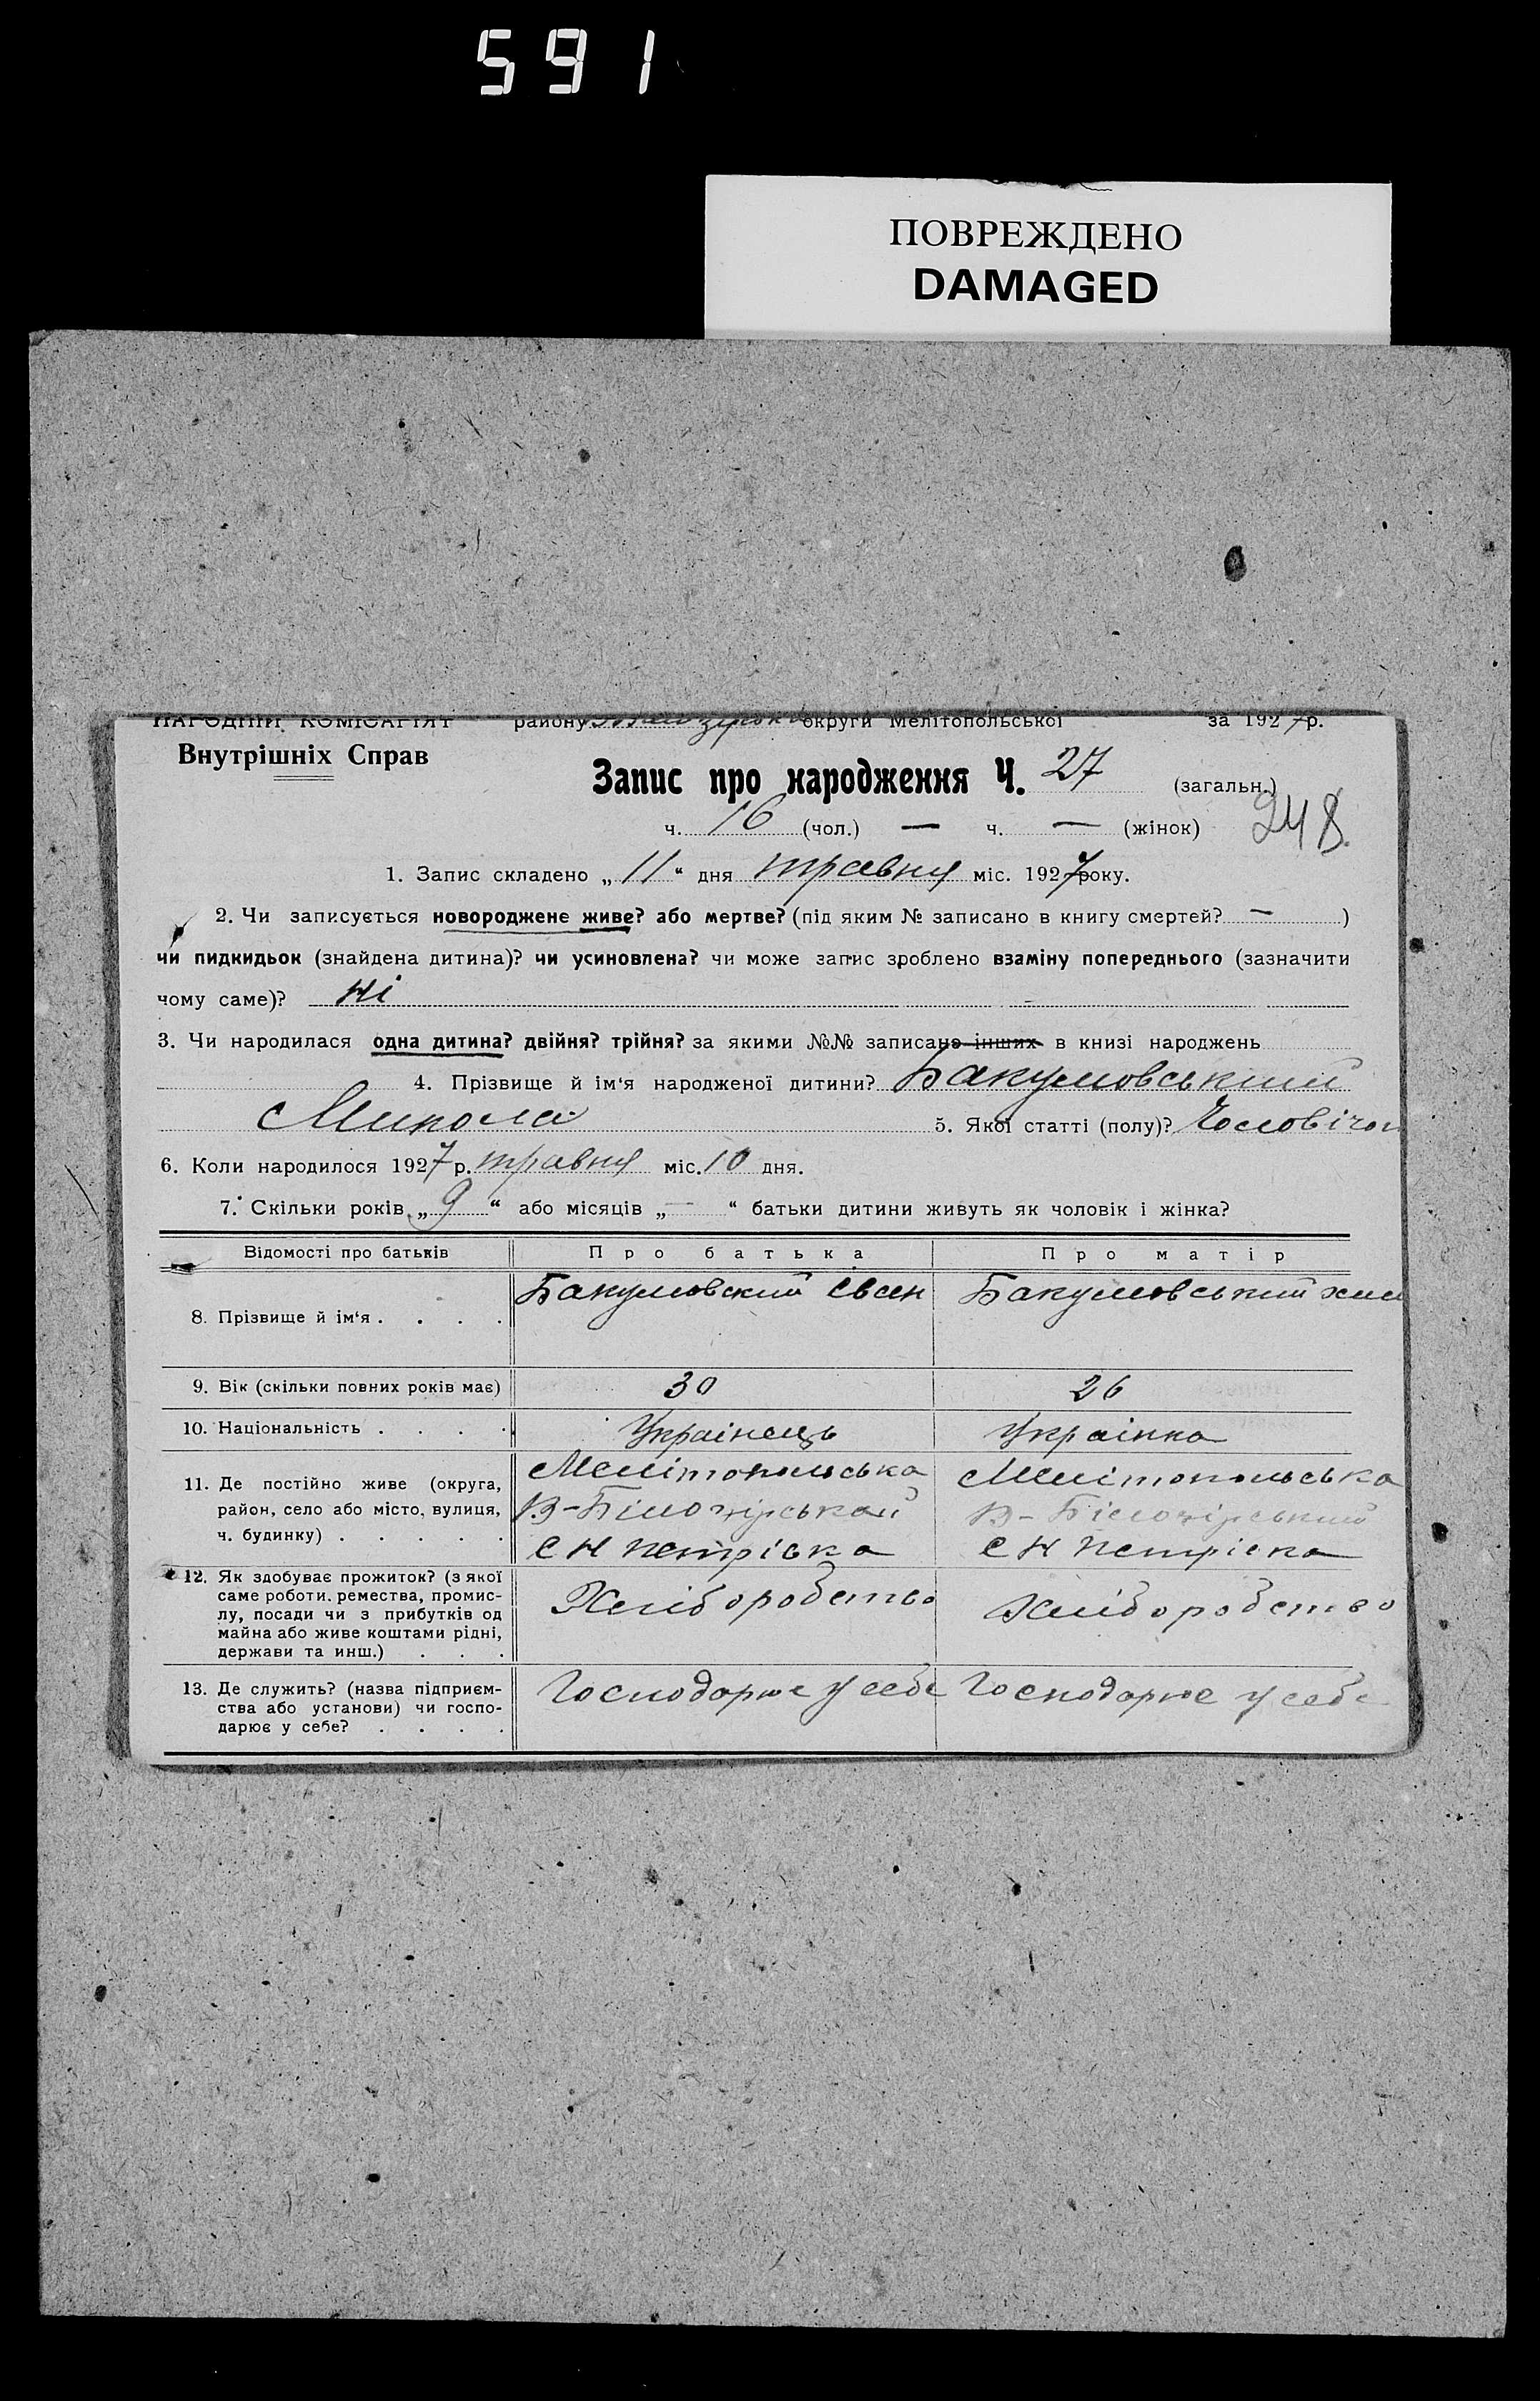 591
ПОВРЕЖДЕНО
DAMAGED
НАРОДНІЙ КОМІСАРІЯТ району округи Мелітопольської за 1927 р.
Внутрішніх Справ
Запис про народження Ч. 27 (загальн.)
ч. 16 (чол.) — ч. — (жінок) 248
1. Запис складено „11“ дня травня міс. 1927 року.
2. Чи записується новороджене живе? або мертве? (під яким № записано в книгу смертей? — )
чи пидкидьок (знайдена дитина)? чи усиновлена? чи може запис зроблено взаміну попереднього (зазначити
чому саме)? ні
3. Чи народилася одна дитина? двійня? трійня? за якими №№ записано інших в книзі народжень
4. Прізвище й ім‘я народженої дитини? Бакумовський
Микола 5. Якої статті (полу)? Чоловічої
6. Коли народилося 1927 р. травня міс. 10 дня.
7. Скільки років „9“ або місяців „—“ батьки дитини живуть як чоловік і жінка?
Відомості про батьків Про батька Про матір
8. Прізвище й ім‘я . . . . Бакумовский Бакумовський
9. Вік (скільки повних років має) 30 26
10. Національність . . . . Українець Українка
11. Де постійно живе (округа, Мелітопольська Мелітопольська
район, село або місто, вулиця, В-Білозірський В-Білозірський
ч. будинку) . . . . . с Н Петрівка с Н Петрівка
12. Як здобуває прожиток? (з якої
саме роботи. ремества, промис-
лу, посади чи з прибутків од Хліборобство Хліборобство
майна або живе коштами рідні,
держави та инш.) . . .
13. Де служить? (назва підприєм- Господарює у себе Господарює у себе
ства або установи) чи госпо-
дарює у себе? . . . .